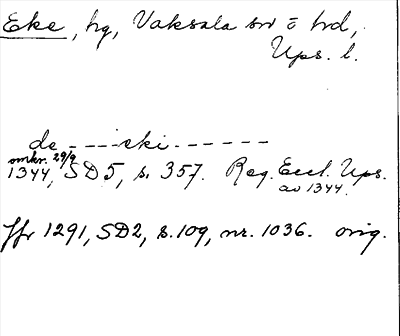 Eke, hg, Vaksala sn o hd,
Ups. l.
de - - - - eki - - - - - -
omkr. 29/9
1344, SD5, s. 357. Reg. Eccl. Ups.
av 1344.
Jfr 1291, SD2, s. 109, nr. 1036. orig.